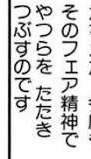 そのフェア精神で
やつらを たたき
つぶすのです